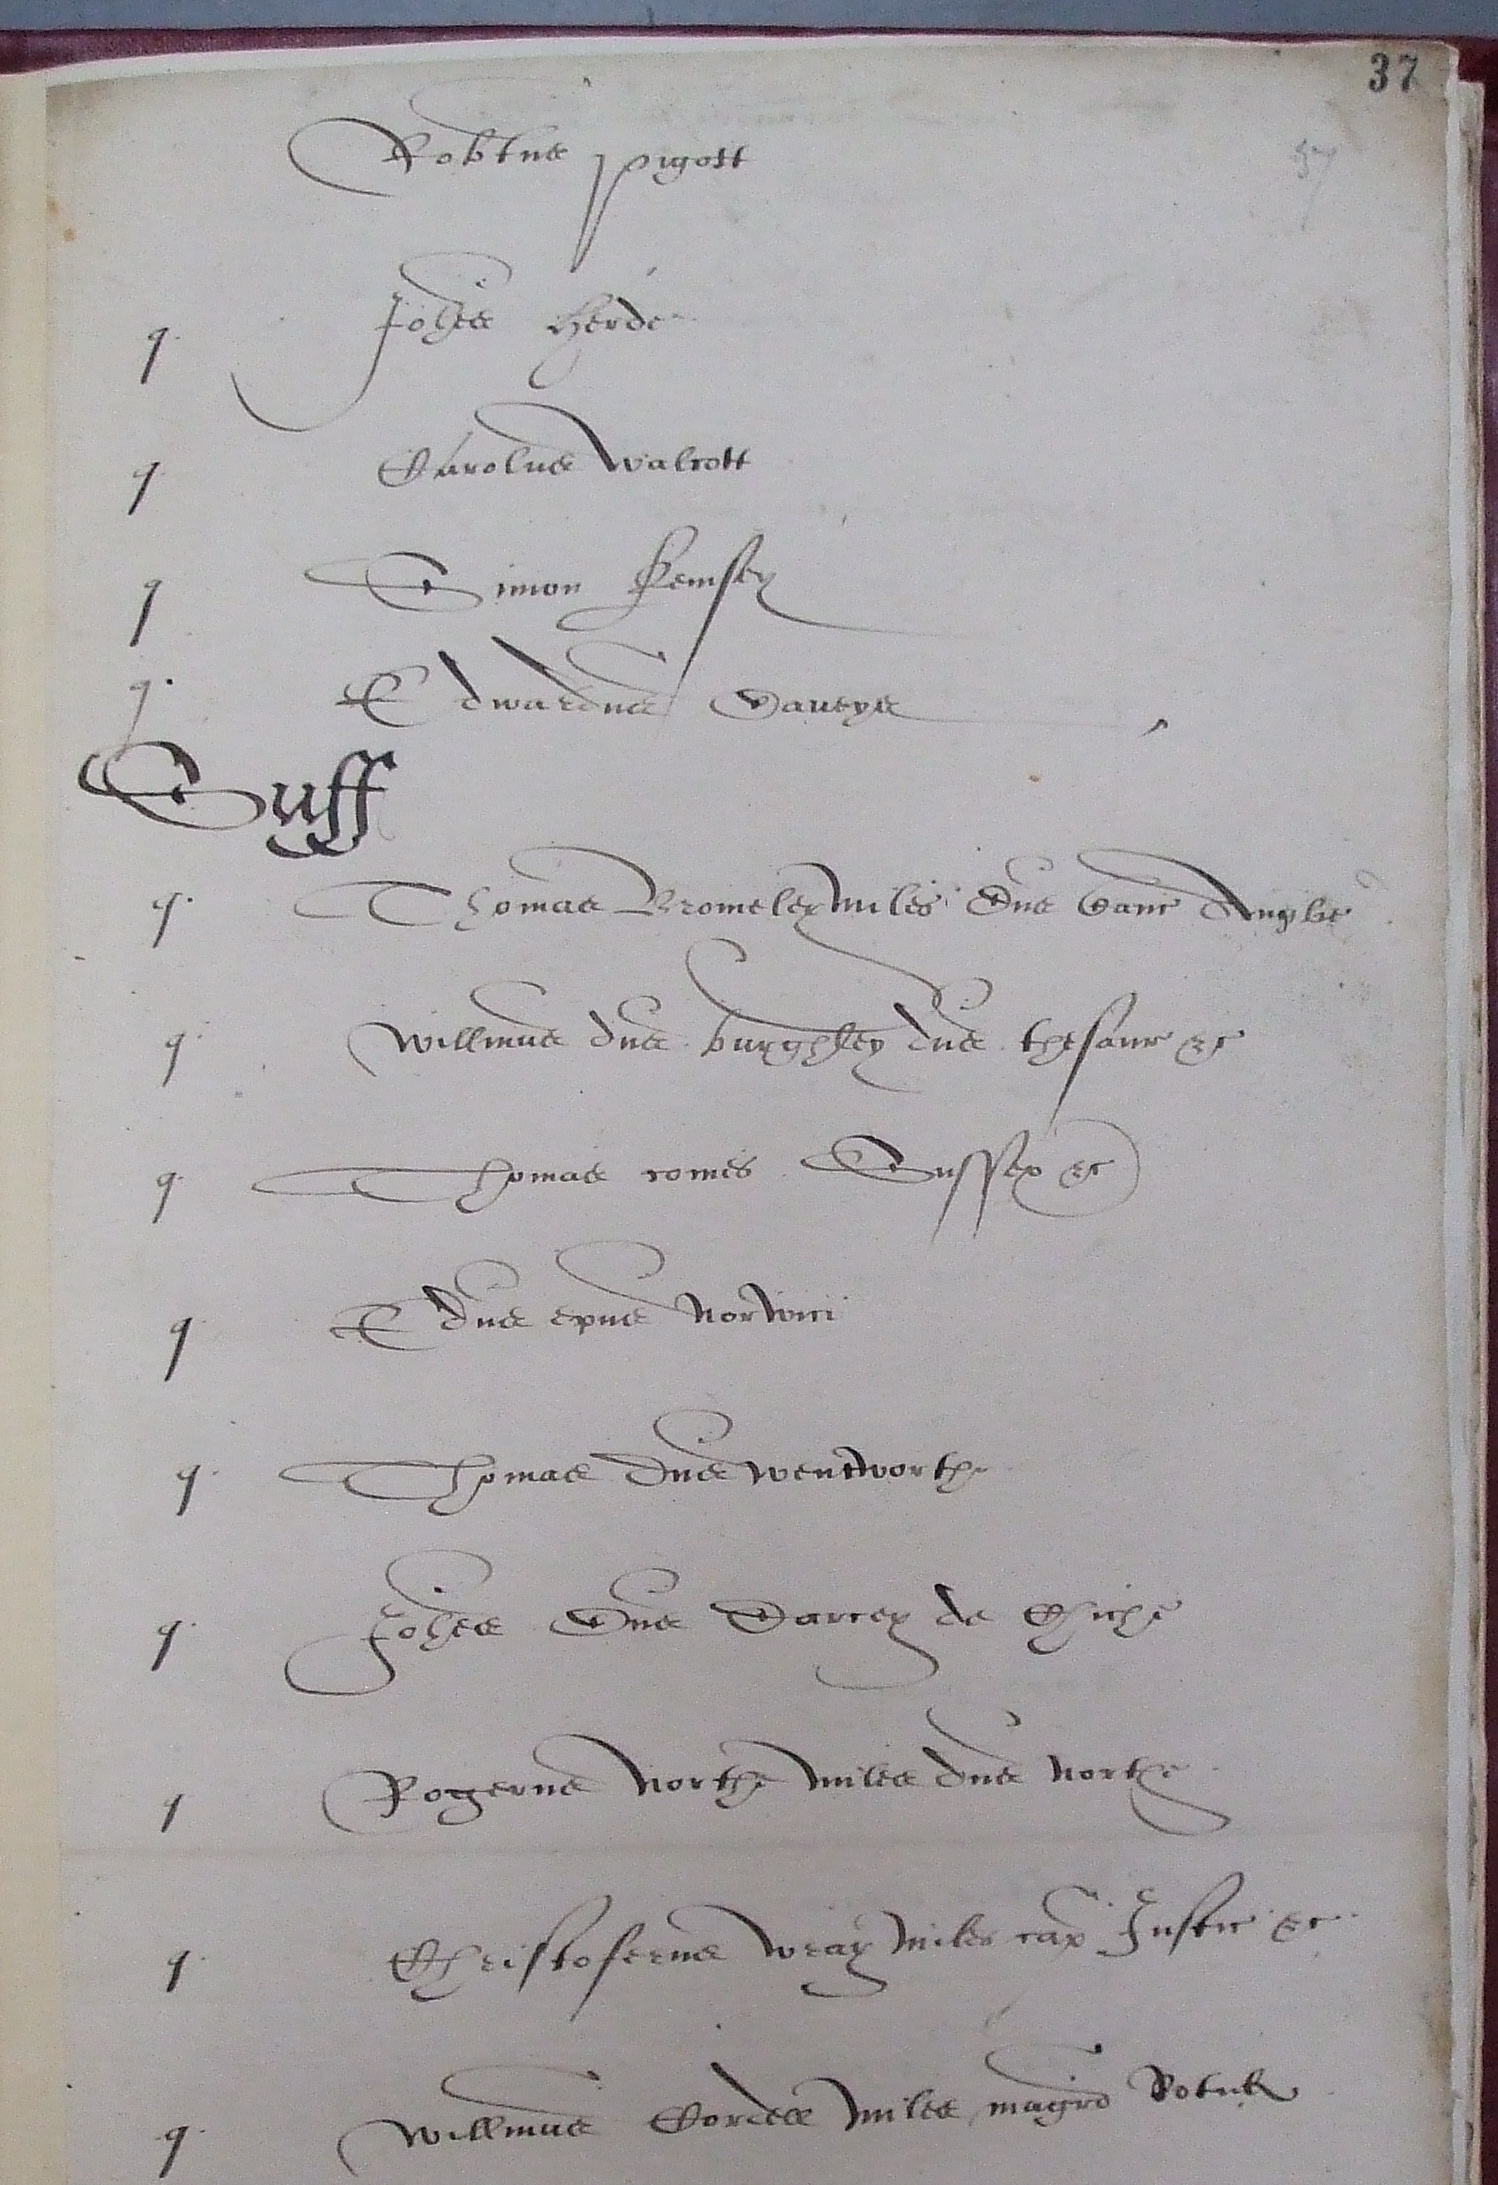 37
37
Robtus pigott
q Johes Herde
q Carolus Walcott
q Simon Kemsey
q Edwardus Daveys
Suff
q Thomas Bromeley miles Dns Canc Anglie
q Willmus dns burghley dns thesaur &c
q Thomas comes Sussex &c
q E dns epus Norwici
q Thomas Dns wentworthe
q Johes Dns Darcey de Chiche
q Rogerus Northe miles dns Northe
q Christoferus wray miles cap Justic &c
q Willmus Cordell miles magro Rotul